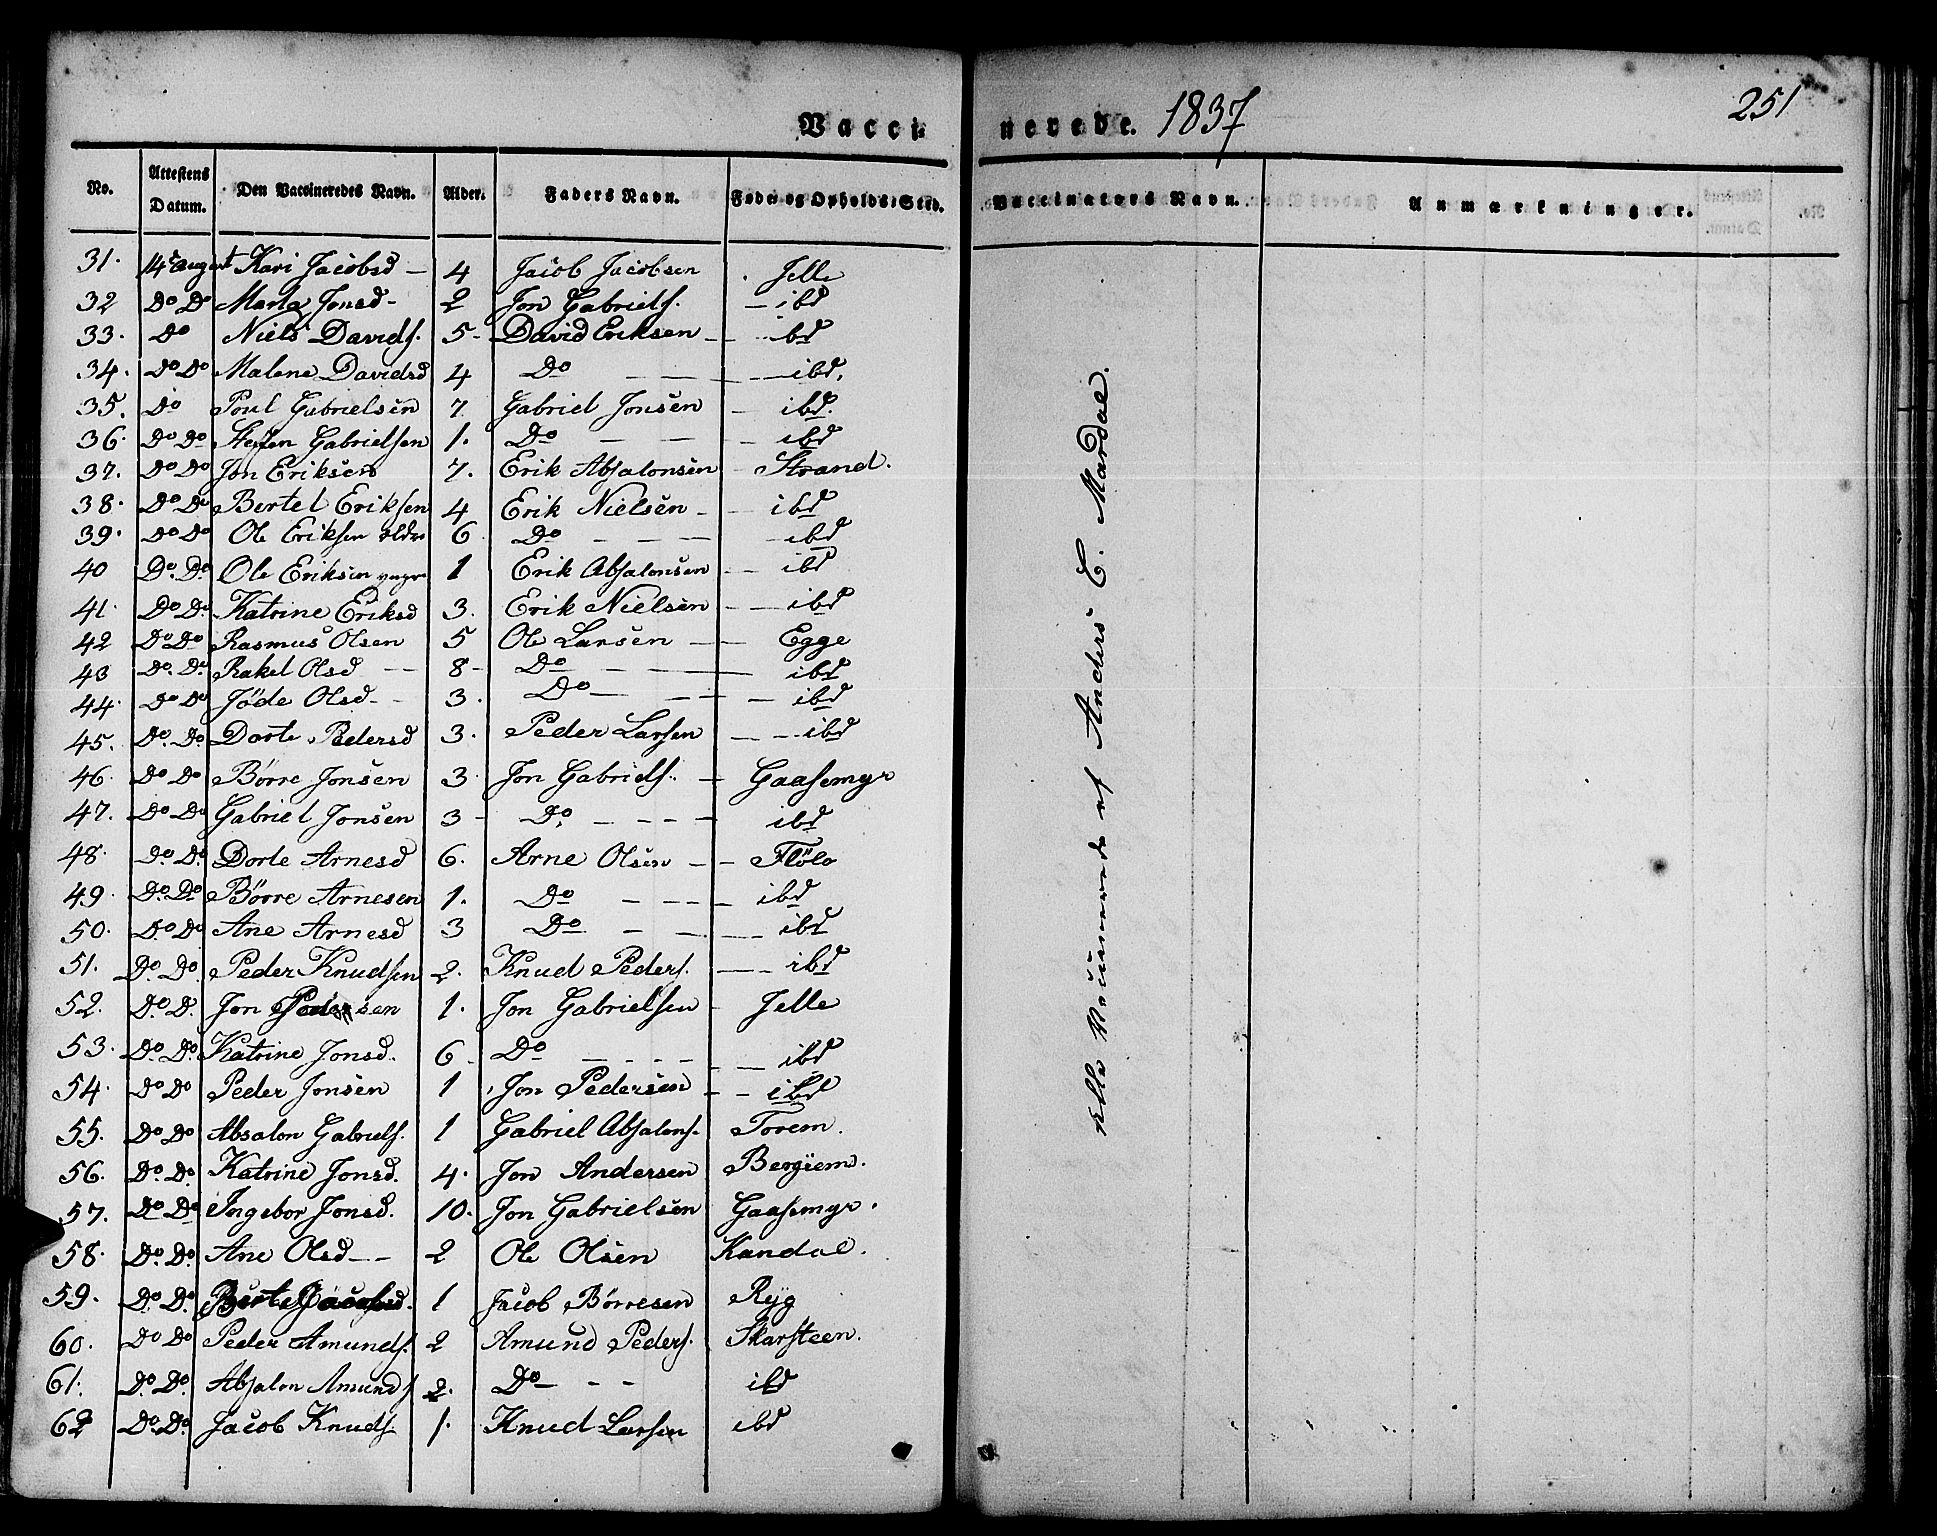 Vaccinerede. 1837
251
No. Attestens Datum. Den Vaccineredes Navn. Alder. Faders Navn. Føde- og Opholds-Sted. Vaccinators Navn. Anmærkninger.
31. 14 august Kari Jacobsd - 4 Jacob Jacobsen Jelle
32 Do Do Marta Jonsd - 2 Jon Gabriels. - ibd
33. Do Niels Davids. 5 - David Eriksen - ibd
34. Do Do Malene Davidsd 4 Do - - - ibd.
35. Do Poul Gabrielsen 7 Gabriel Jonsen - ibd.
36. Do Do Steffen Gabrielsen 1. Do - - - ibd
37. Do Do Jon Eriksen 7. Erik Absalonsen - Strand.
38. Do Do Bertel Eriksen 4 Erik Nielsen - - ibd
39. Do Do Ole Eriksen eldre 6 Do - - - ibd
40 Do. Do. Ole Eriksen yngre 1 Erik Absalonsen - - ibd
41. Do Do. Katrine Eriksd 3. Erik Nielsen - - ibd
42 Do Do Rasmus Olsen 5 Ole Larsen - - Egge
43 Do. Do Rakel Olsd - - 8 - Do - - - ibd
44. Do Do Jøde Olsd - - 3. Do - - - - ibd
45. Do. Do. Dorte Pedersd 3. Peder Larsen - - - ibd
46. Do Do Børre Jonsen 3. Jon Gabriels. - Gaasemyr
47. Do Do Gabriel Jonsen 3 - Do. - - - - ibd
48. Do. Do. Dorte Arnesd 6. Arne Olsen - - Fløle
49. Do. Do Børre Arnesen 1. Do - - - - ibd
50. Do. Do Ane Arnesd 3 Do - - - - ibd
51. Do. Do. Peder Knudsen 2. Knud Peders. - - - ibd
52. Do. D. Jon Pedersen 1. Jon Gabrielsen - Jelle
53. Do. Do. Katrine Jonsd. 6 - Do - - - - - - ibd
54. Do Do Peder Jonsen 1 Jon Pedersen - - ibd
55. Do Do Absalon Gabriels. 1 Gabriel Absalons. Torem.
56. Do. Do. Katrine Jonsd. 4. Jon Andersen Bergiem.
57. Do Do Ingebor Jonsd. 10. Jon Gabrielsen Gaasemyr.
58. Do. Do. Ane Olsd - - 2 Ole Olsen Kandal.
59. Do. Do. Berte Jacobsd. 1 Jacob Børresen Ryg
60. Do Do Peder Amunds. 2 Amund Peders. Skarsteen.
61. Do. Do. Absalon Amunds 2. Do - - - ibd
62 Do. Do. Jacob Knuds 1. Knud Larsen ibd
af Anders C. Mardal.